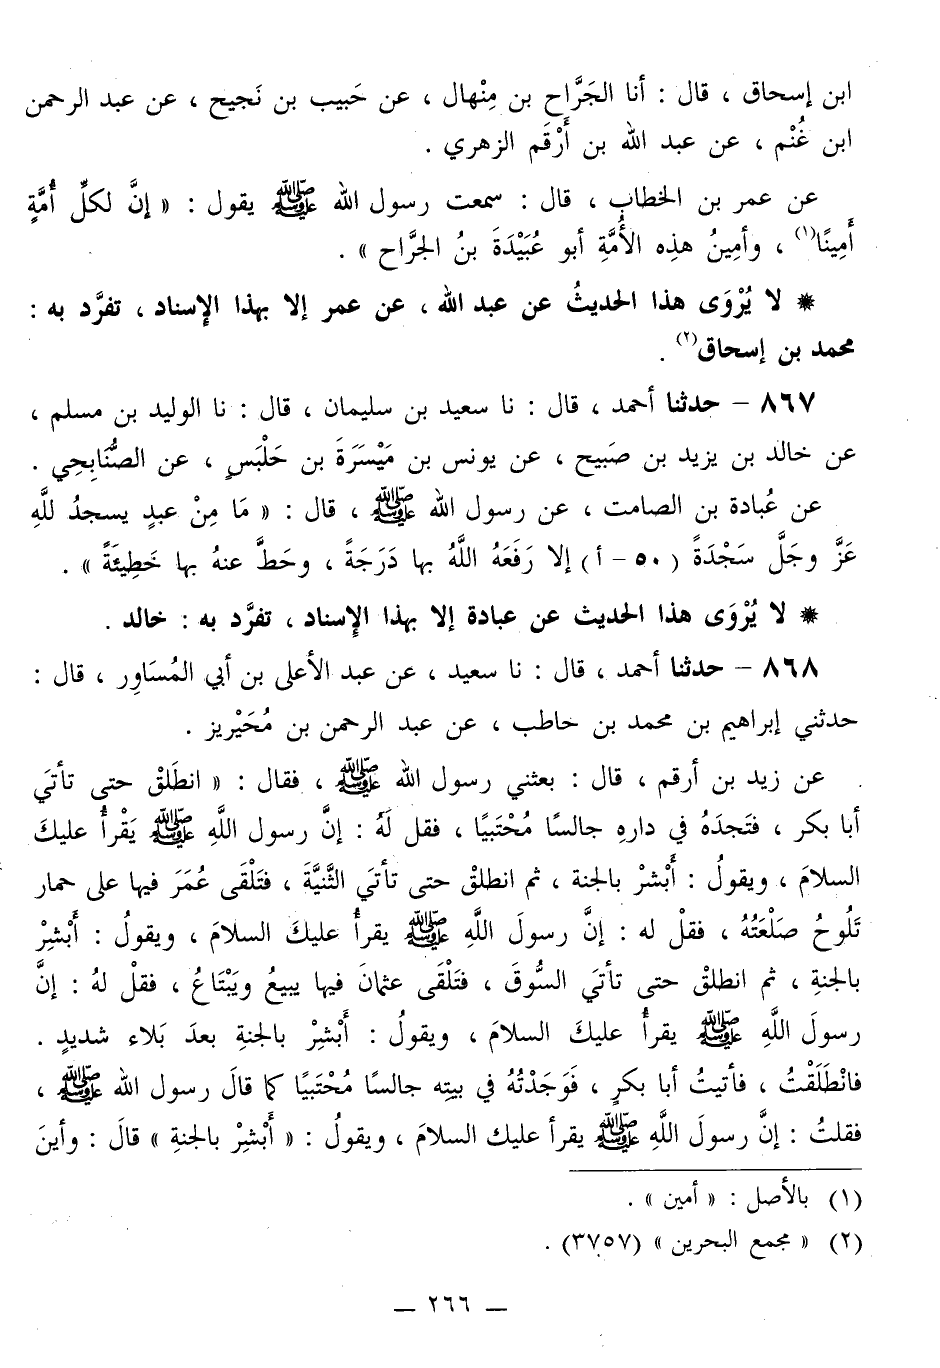 ابن إسحاق ، قال : أنا الجَرَّاح بن مِنْهال ، عن حَبيب بن نَجيح ، عن عبد الرحمن
ابن غُنْم ، عن عبد الله بن أَرْقَم الزهري .
عن عمر بن الخطاب ، قال : سمعت رسول الله ﷺ يقول : « إنَّ لكلِّ أُمَّةٍ
أَمِينًا(١) ، وأمِينُ هذِه الأُمَّةِ أبو عُبَيْدَةَ بنُ الجَرَّاح » .
* لا يُرْوَى هذا الحديثُ عن عبد الله ، عن عمر إلا بهذا الإسناد ، تفرَّد به :
محمد بن إسحاق(٢) .
٨٦٧ – حدثنا أحمد ، قال : نا سعيد بن سليمان ، قال : نا الوليد بن مسلم ،
عن خالد بن يزيد بن صَبيح ، عن يونس بن مَيْسَرَةَ بن حَلْبَسٍ ، عن الصُّنَابِحِي .
عن عُبادة بن الصامت ، عن رسول الله ﷺ ، قال : « مَا مِنْ عبدٍ يسجدُ للَّهِ
عَزَّ وجَلَّ سَجْدَةً ( ٥٠ – أ ) إلا رَفَعَهُ اللَّهُ بها دَرَجَةً ، وحَطَّ عنهُ بها خَطِيئَةً » .
* لا يُرْوَى هذا الحديث عن عبادة إلا بهذا الإسناد ، تفرَّد به : خالد .
٨٦٨ – حدثنا أحمد ، قال : نا سعيد ، عن عبد الأعلى بن أبي المُسَاوِر ، قال :
حدثني إبراهيم بن محمد بن حاطب ، عن عبد الرحمن بن مُحَيْريز .
عن زيد بن أرقم ، قال : بعثني رسول الله ﷺ ، فقال : « انطَلَقْ حتى تأتيَ
أبا بكر ، فتَجدَهُ في دارِهِ جالسًا مُحْتَبيًا ، فقل لَهُ : إنَّ رسول اللَّهِ ﷺ يَقْرأُ عليكَ
السلامَ ، ويقولُ : أَبْشرْ بالجنة ، ثم انطلقْ حتى تأتيَ الثَّنيَّةَ ، فتَلْقَى عُمَرَ فيها على حمار
تَلُوحُ صَلْعَتُهُ ، فقلْ له : إنَّ رسولَ اللَّهِ ﷺ يقرأُ عليكَ السلامَ ، ويقولُ : أَبْشِرْ
بالجنةِ ، ثم انطلقْ حتى تأتيَ السُّوقَ ، فتَلْقَى عثمانَ فيها يبيعُ ويَبْتَاعُ ، فقلْ لهُ : إنَّ
رسولَ اللَّهِ ﷺ يقرأُ عليكَ السلامَ ، ويقولُ : أَبْشِرْ بالجنةِ بعدَ بَلاء شديدٍ .
فانْطَلَقْتُ ، فأتيتُ أبا بكرٍ ، فَوَجَدْتُهُ في بيتِه جالسًا مُحْتَبيًا كما قالَ رسول الله ﷺ ،
فقلتُ : إنَّ رسولَ اللَّهِ ﷺ يقرأ عليك السلامَ ، ويقولُ : « أَبْشِرْ بالجنةِ » قالَ : وأينَ
(١) بالأصل : « أمين » .
(٢) « مجمع البحرين » (٣٧٥٧) .
— ٢٦٦ —